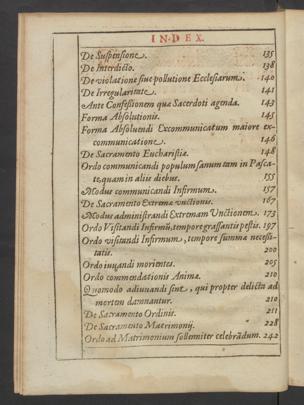 INDEX.
De Suspensione. 135
De Interdicto. 138
De violatione siue pollutione Ecclesiarum. 140
De Irregularitate. 141
Ante Confessionem quæ Sacerdoti agenda. 143
Forma Absolutionis. 145
Forma Absoluendi Excommunicatum maiore ex-
communicatione. 146
De Sacramento Eucharistiæ. 148
Ordo communicandi populum sanum tam in Pasca-
te, quam in aliis diebus. 155
Modus communicandi Infirmum. 157
De Sacramento Extremæ vnctionis. 167
Modus administrandi Extremam Vnctionem. 173
Ordo Visitandi Infirmũ, tempore grassantis pestis. 197
Ordo visitandi Infirmum, tempore summæ necessi-
tatis. 200
Ordo iuuandi morientes. 205
Ordo commendationis Animæ. 210
Quomodo adiuuandi sint, qui propter delicta ad
mortem damnantur. 210
De Sacramento Ordinis. 211
De Sacramento Matrimonij. 228
Ordo ad Matrimonium sollemniter celebrãdum. 242